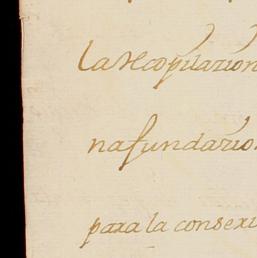 la recopilazion
na fundazio
para la consexu